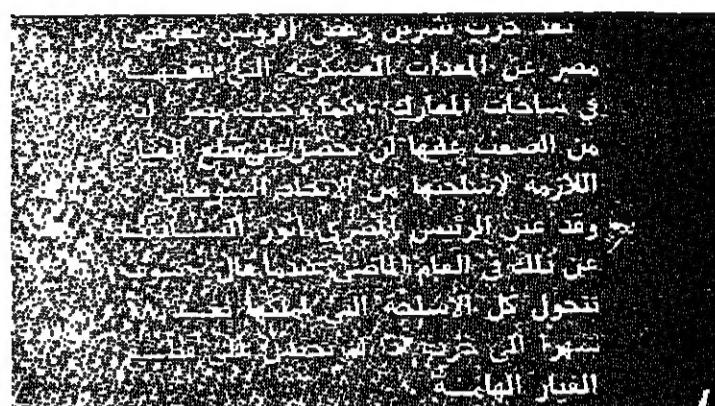 بعد حرب تشرين رفض الروس تعويض
مصر عن المعدات العسكرية التي فقدتها
في ساحات المعارك كما وجدت مصر ان
من الصعب عليها ان تحصل على قطع الغيار
اللازمة لاسلحتها من الاتحاد السوفياتي
وقد عبر الرئيس المصري انور السادات
عن ذلك في العام الماضي عندما قال سوف
تتحول كل الاسلحة التي نملكها بعد ١٨
شهرا الى خردة اذا لم نحصل على قطع
الغيار الهامة